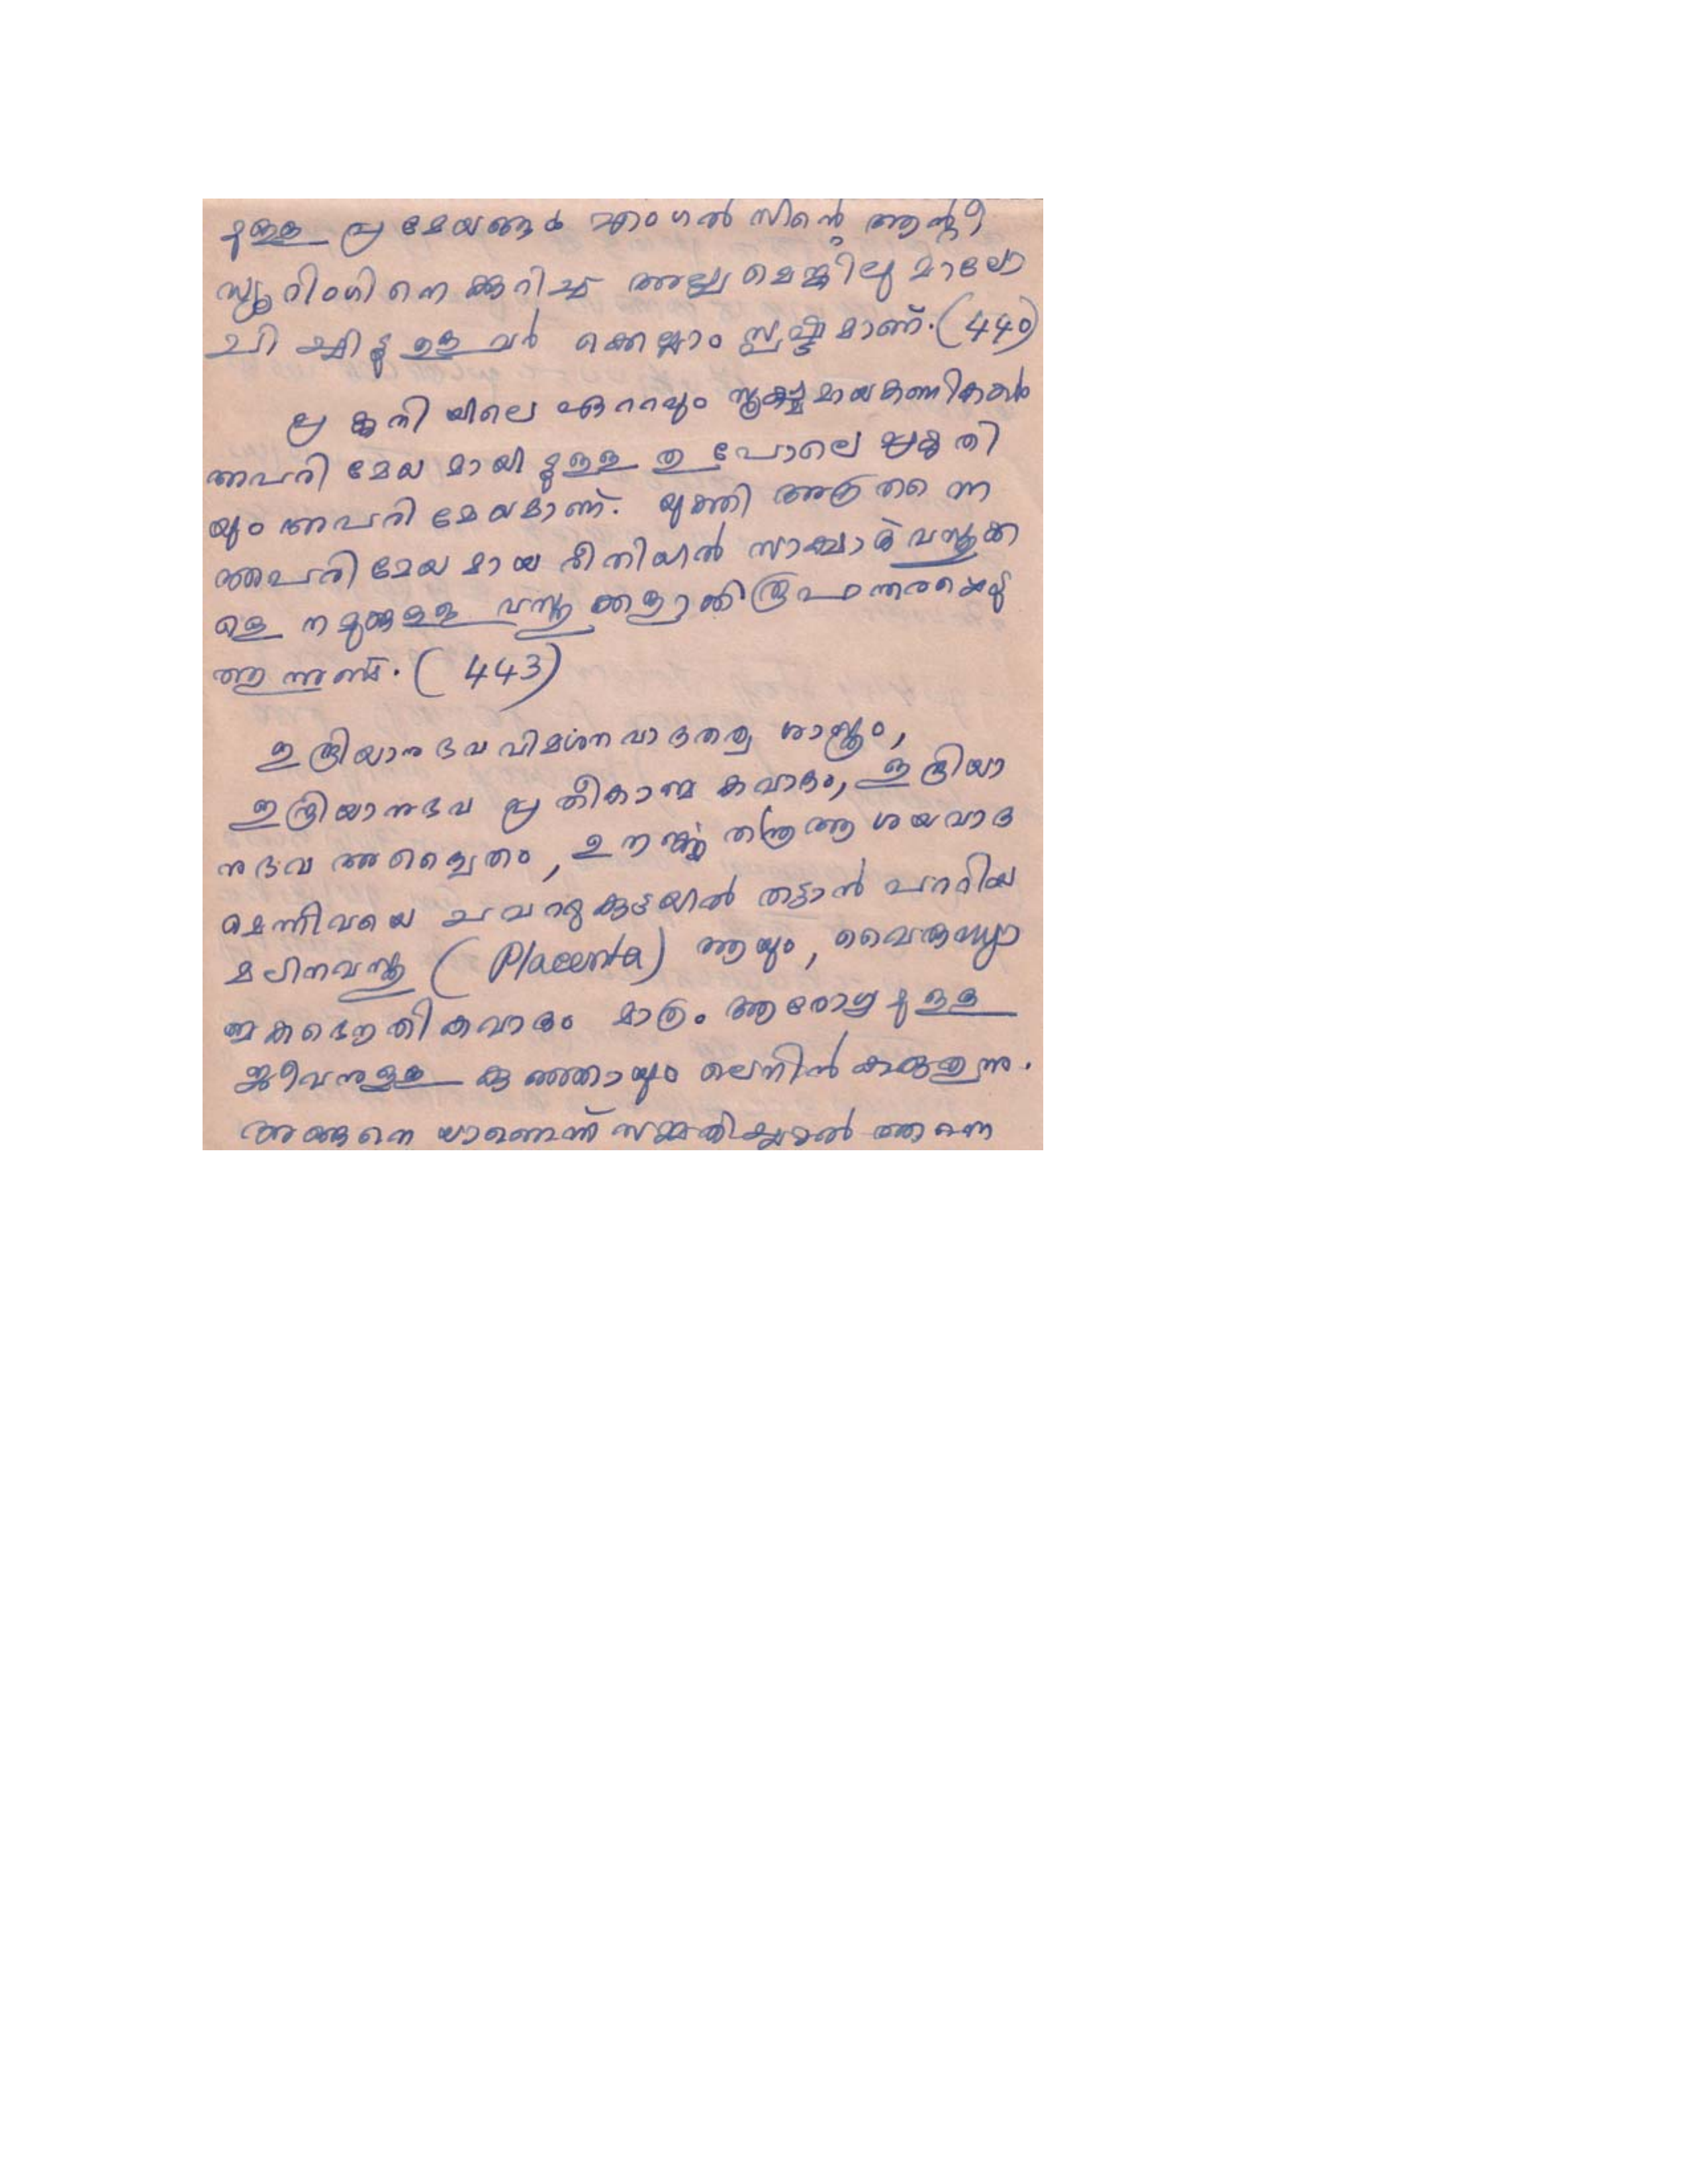 മുള്ള പ്രമേയങ്ങൾ എംഗൽസിന്റെ ആന്റീ
ഡ്യൂറിംഗിനെക്കുറിച്ച് അല്പമെങ്കിലുമാലോ
ചിച്ചിട്ടുള്ളവർ ക്കെല്ലാം സ്പഷ്ടമാണ്. (440)
പ്രകൃതിയിലെ ഏററവും സൂക്ഷ്മമായകണികകൾ
അപരിമേയമായിട്ടുള്ളതുപോലെ പ്രകൃതി
യും അപരിമേയമാണ്. യുക്തി അത്രതന്നെ
അപരിമേയമായ രീതിയിൽ സാക്ഷാൽവസ്തുക്ക
ളെ നമുക്കുള്ള വസ്തുക്കളാക്കിരൂപാന്തരപ്പെടു
ത്തുന്നുണ്ട്. (443)
ഇന്ദ്രിയാനുഭവവിമർശനവാദതത്വശാസ്ത്രം,
ഇന്ദ്രിയാനുഭവ പ്രതീകാത്മകവാദം, ഇന്ദ്രിയാ
നുഭവ അദ്വൈതം, ആശയവാദ
മെന്നിവയെ ചവററുകുട്ടയിൽ തട്ടാൻ പററിയ
മലിനവസ്തു (Placenta) ആയും, വൈരുദ്ധ്യാ
ത്മകഭൌതികവാദം മാത്രം ആരോഗ്യമുള്ള
ജീവനുള്ള കുഞ്ഞായും ലെനിൻ കരുതുന്നു.
അങ്ങനെയാണെന്ന് സമ്മതിച്ചാൽ തന്നെ